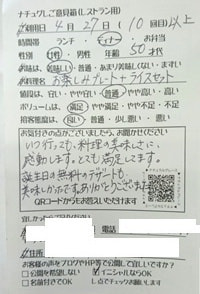 ナチュグルご意見箱(レストラン用)
ご利用日 4月27日(10回目)以上
時間帯 ランチ・ディナー・お弁当
性別 女性 男性 年齢 50才代
味 美味しい・普通・あまり美味しくない・まずい
料理名 お楽しみプレート+ライスセット
値段は 安い・やや安い・普通・やや高い・高い
ボリュームは 満足・やや満足・普通・不満
接客態度は 良い・普通・少し悪い・悪い
お気付きの点がございましたら、お聞かせください
いつ行っても料理の美味しさに
感動します。とても満足してます。
誕生日の無料のデザートも
美味しかったですありがとうございます
QRコードからもお答えいただけます
宜しかったら
電話
住所
お客様の声をブログやHP等で公開して宜しいですか?
□公開を希望しない イニシャルならOK
□名前付きでOK レ点でチェックお願いします